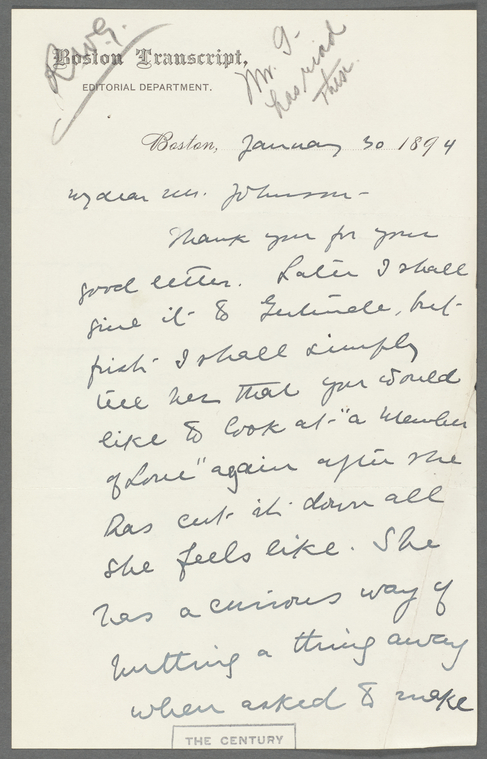 R.W.G.
Mr. G.
has read
these.
Boston Transcript,
EDITORIAL DEPARTMENT.
Boston, January 30 1894
My dear Mr. Johnson-
Thank you for your
good letter. Later I shall
give it to Gertrude, but
first I shall simply
tell her that you would
like to look at "a Member
of Love" again after she
has cut it down all
she feels like. She
has a curious way of
putting a thing away
when asked to make
THE CENTURY